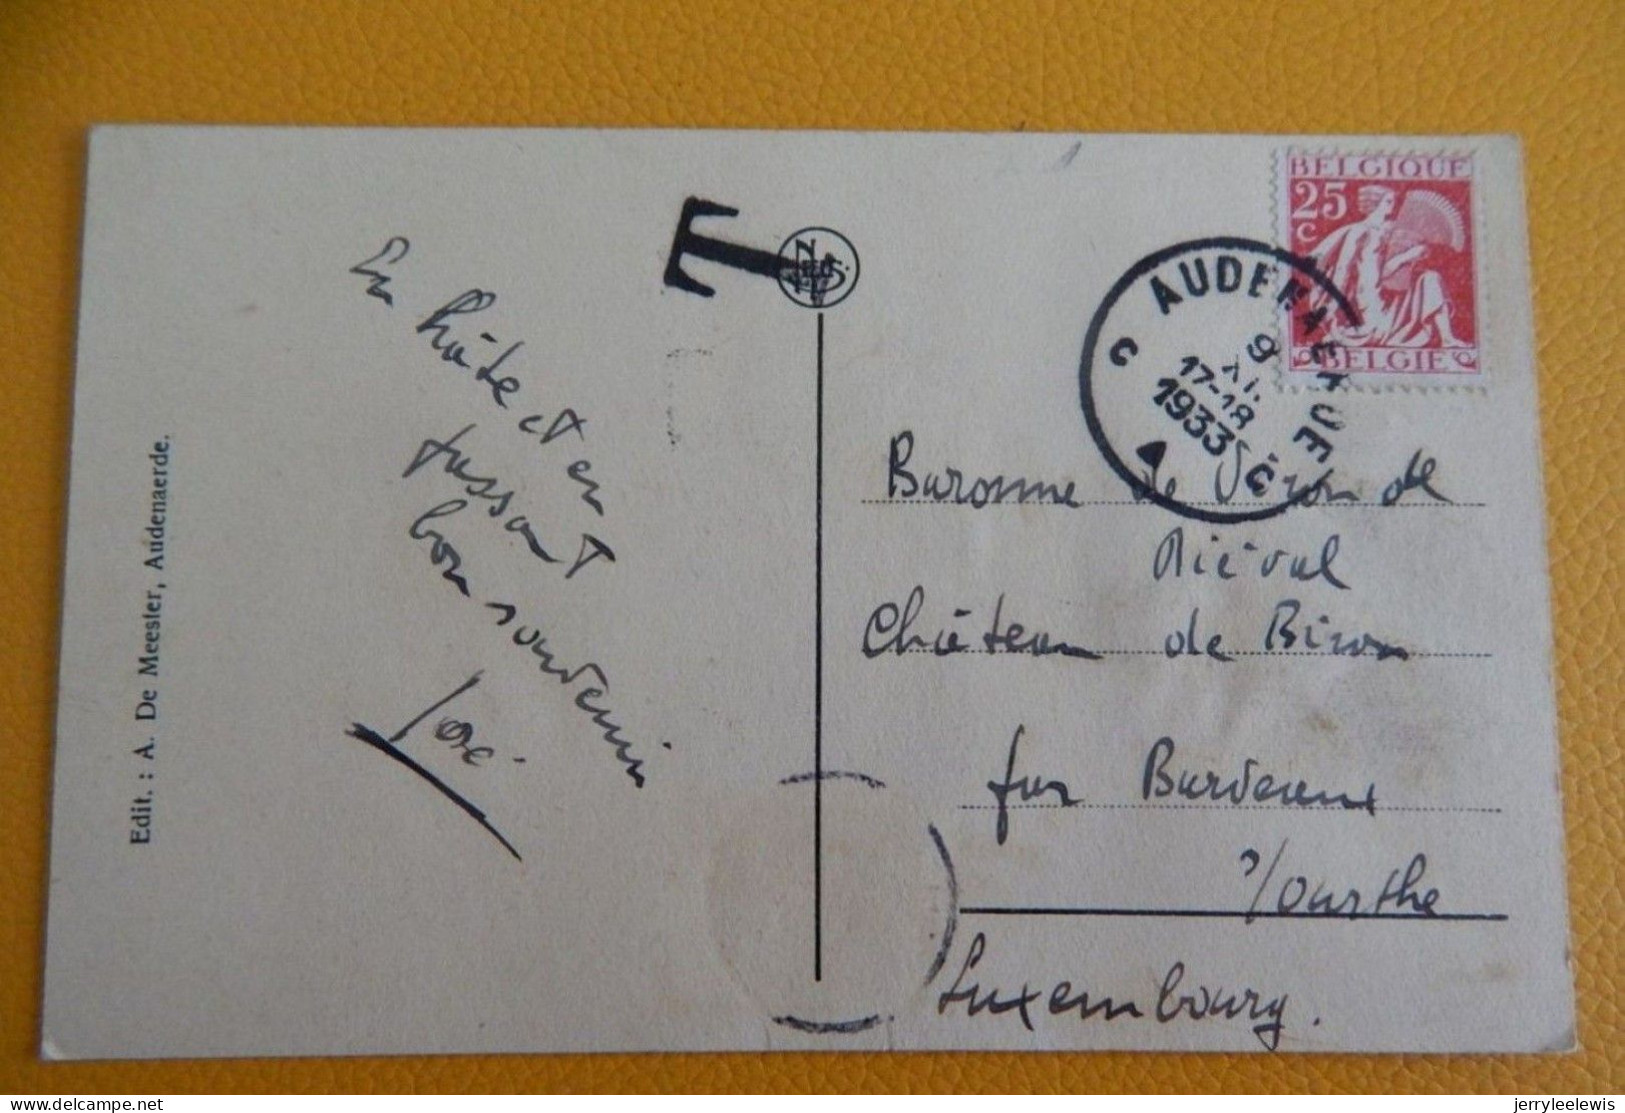 En hâte et en
passant
bon souvenir
José
Edit. : A. De Meester, Audenaerde.
T
BELGIQUE
25
C
BELGIE
AUDENAERDE
9
XI
17-18
1933
C C
Baronne de Véron de
Riéval
Château de Biron
par Burdeaux
s/ourthe
Luxembourg.
jerryleelewis